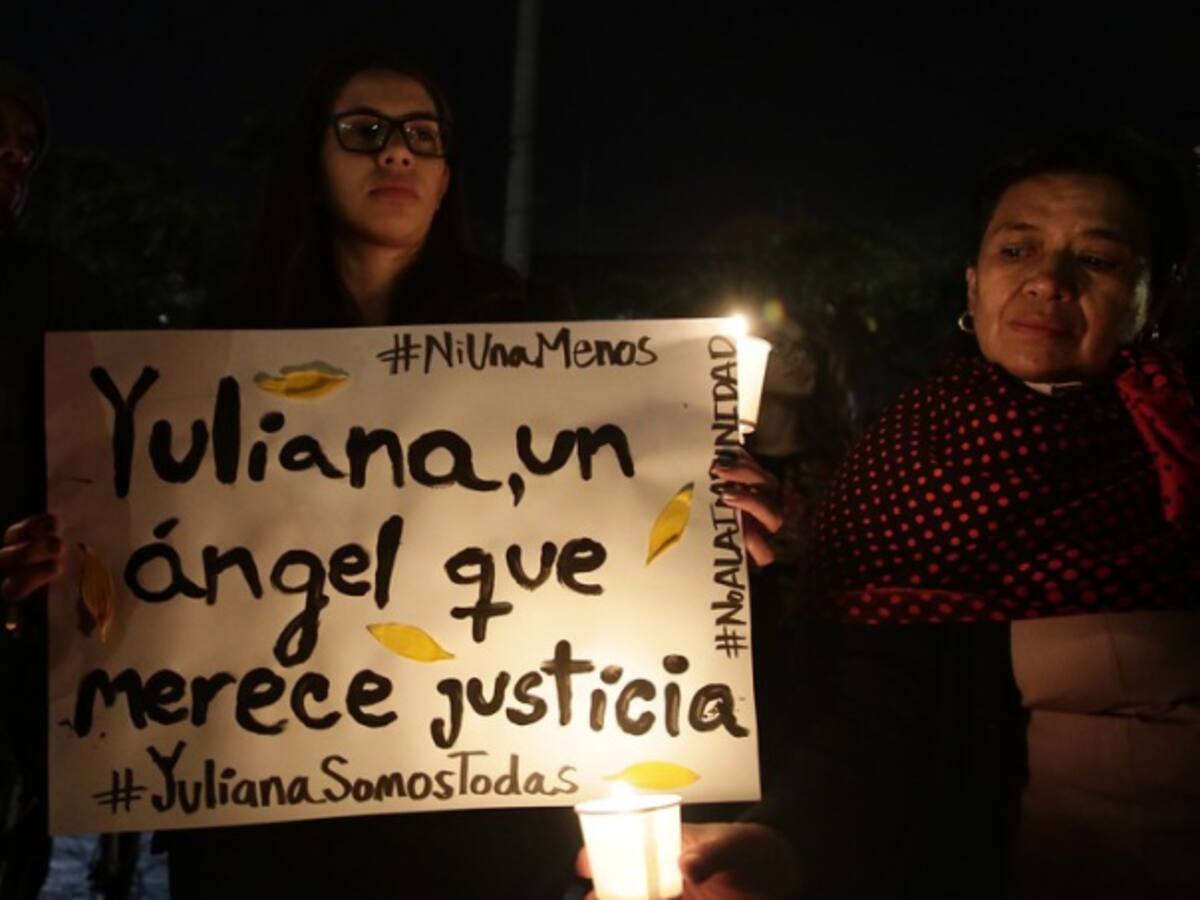 #NiUnaMenos
Yuliana, un
ángel que
merece justicia
#YulianaSomosTodas
#NoALAIMPUNIDAD